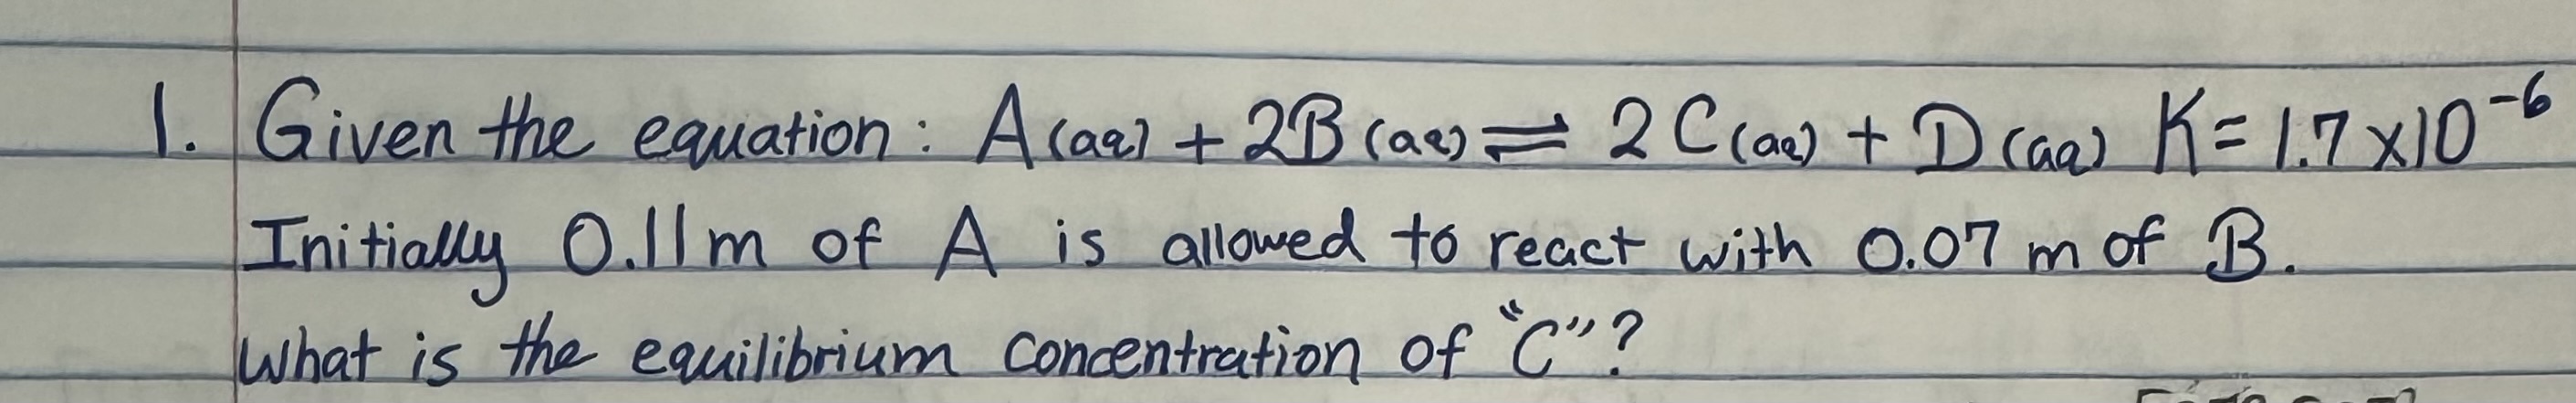 1. Given the equation: A(aq) + 2B(aq) ⇌ 2C(aq) + D(aq) K = 1.7 x 10⁻⁶
Initially 0.11m of A is allowed to react with 0.07 m of B.
What is the equilibrium concentration of "C"?